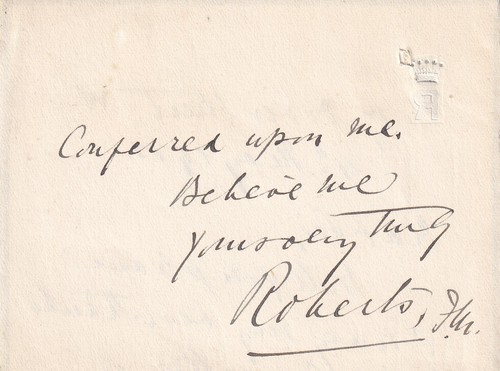 Conferred upon me.
Believe me
Yours very truly
Roberts, F.M.